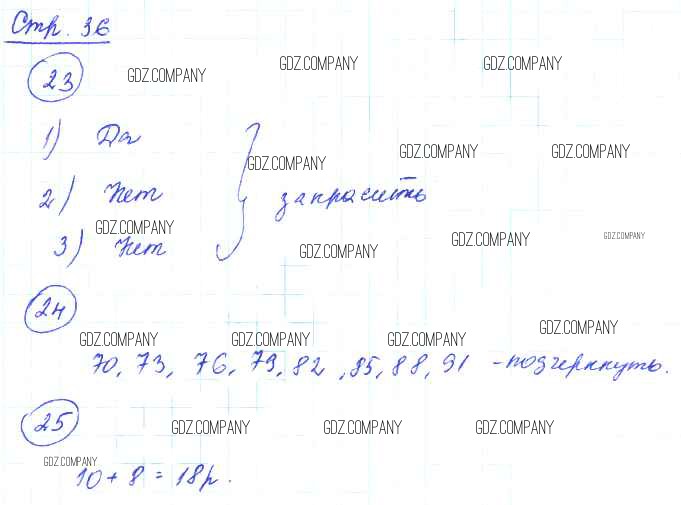 Стр. 36
23
GDZ.COMPANY GDZ.COMPANY GDZ.COMPANY
1) Да
GDZ.COMPANY GDZ.COMPANY GDZ.COMPANY
2) Нет
закрасить
GDZ.COMPANY
3) Нет
GDZ.COMPANY GDZ.COMPANY GDZ.COMPANY
24
GDZ.COMPANY GDZ.COMPANY GDZ.COMPANY GDZ.COMPANY
70, 73, 76, 79, 82, 85, 88, 91 - подчеркнуть.
25
GDZ.COMPANY GDZ.COMPANY GDZ.COMPANY
GDZ.COMPANY
10 + 8 = 18 р.